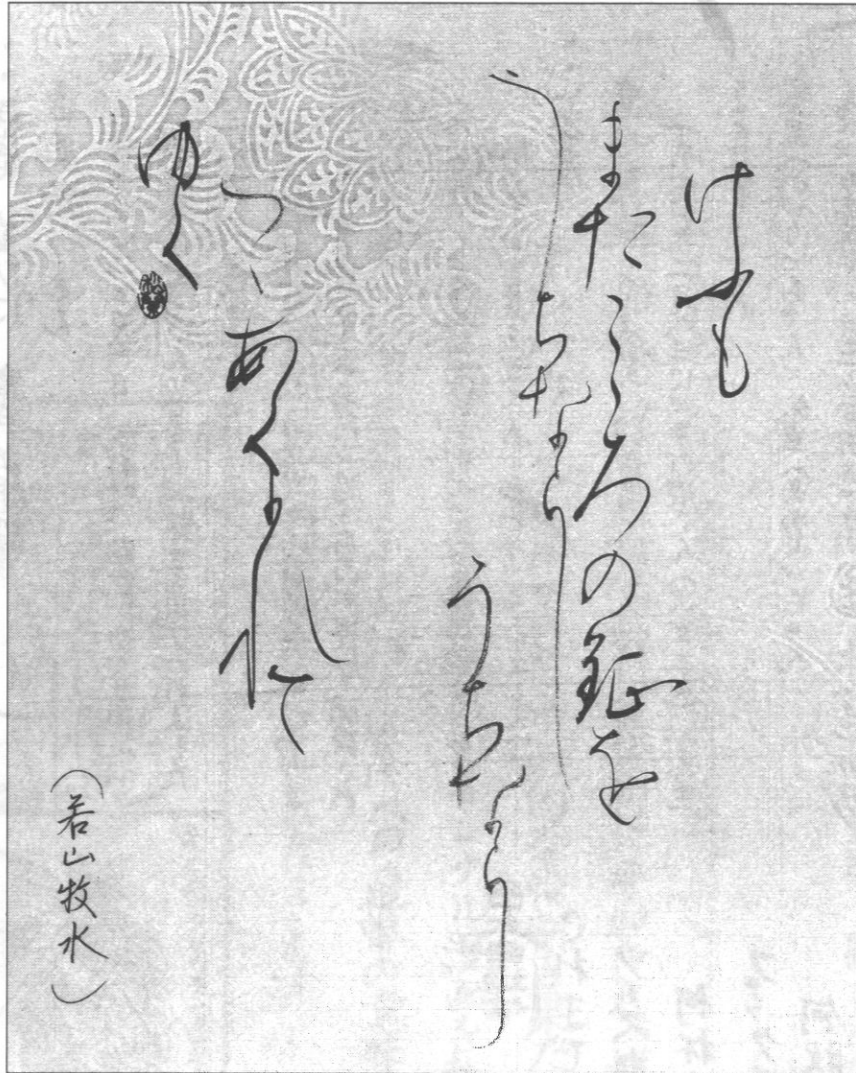 けふも
またこころの鉦を
うちならし
うちならし
つつあくがれて
ゆく
（若山牧水）